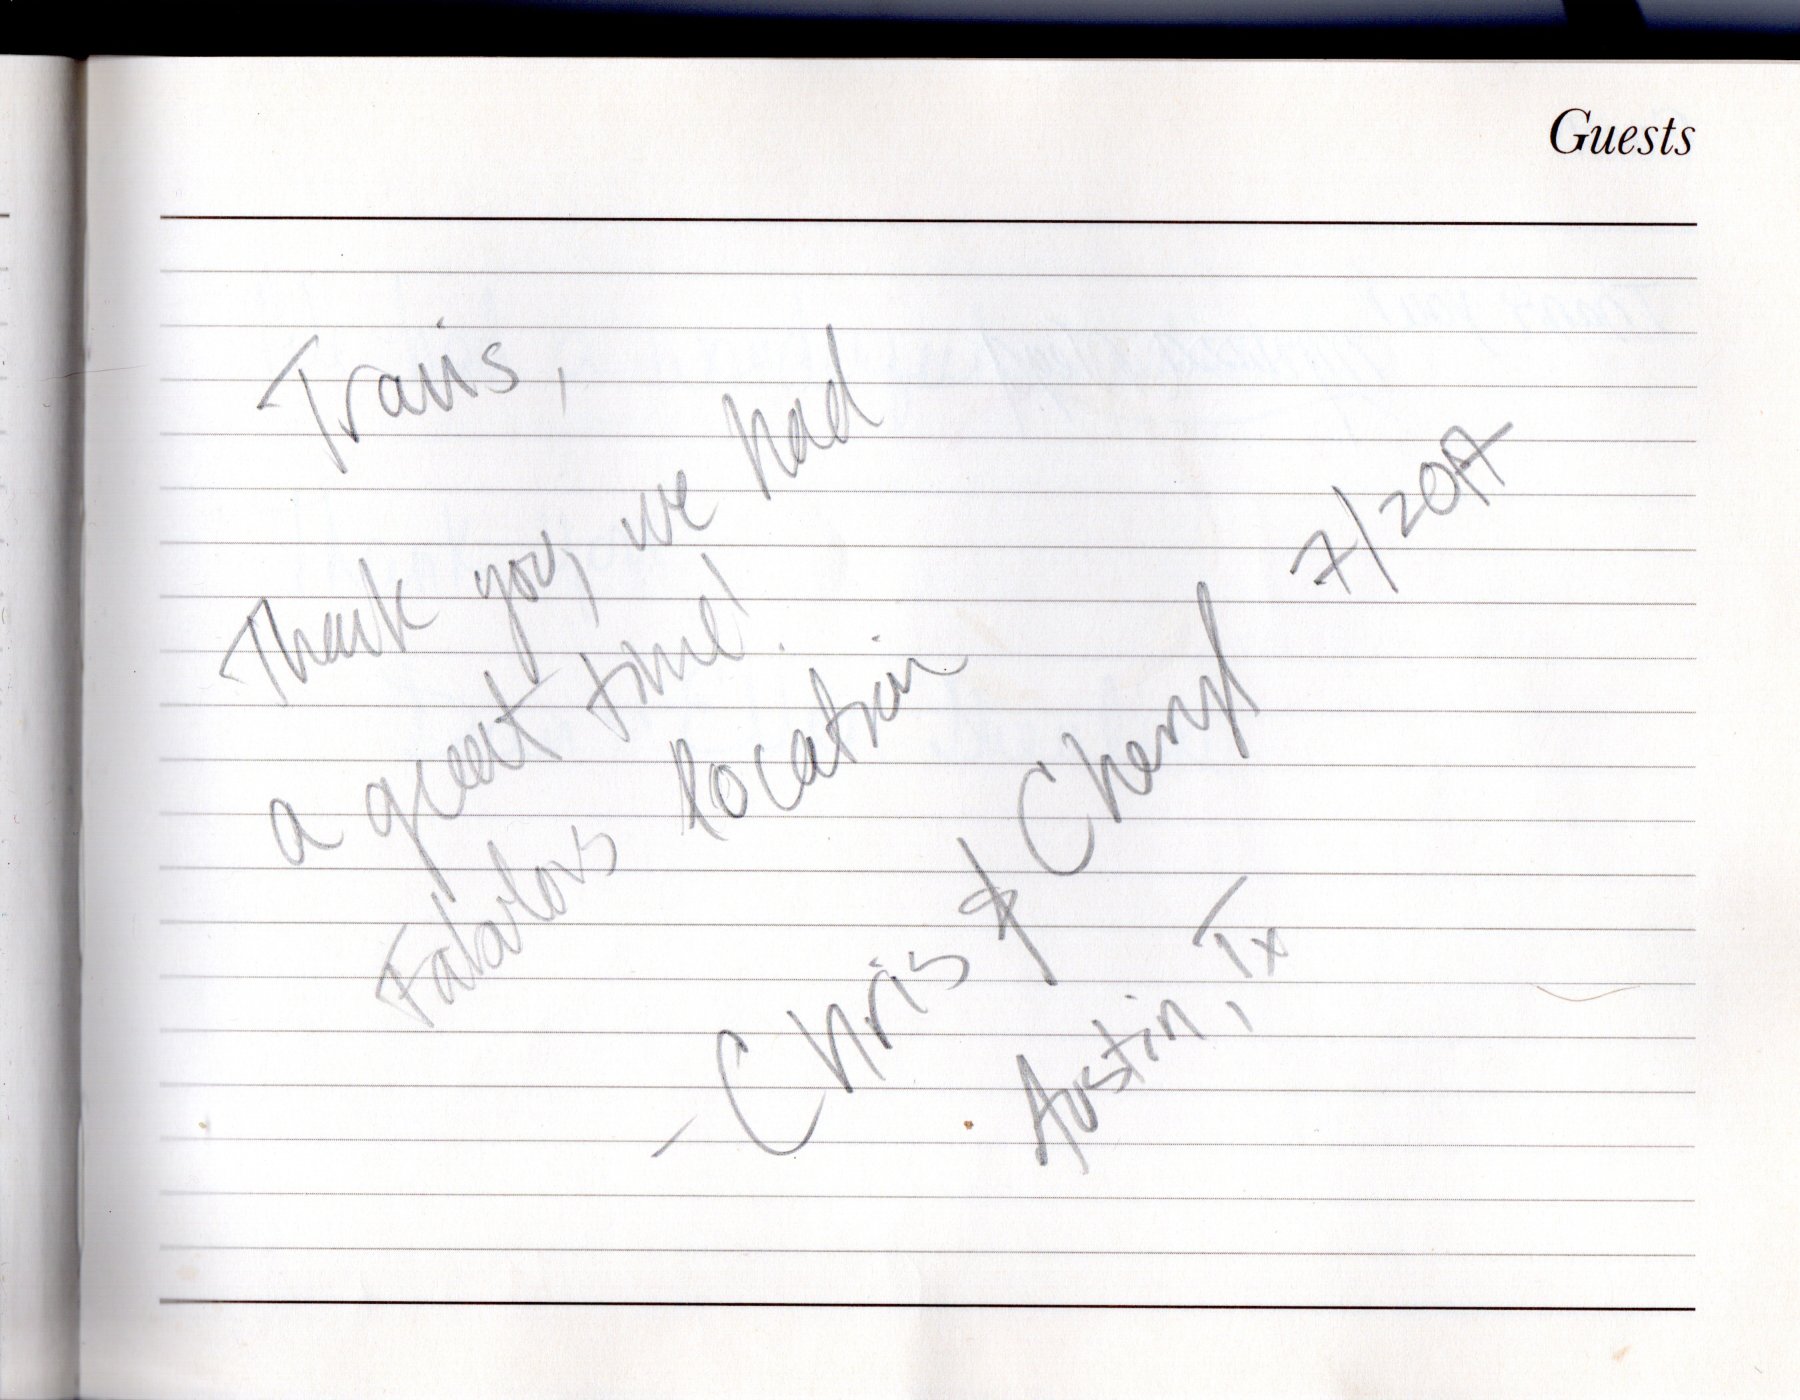 Guests
Travis,
Thank you, we had
a great time!
Fabulous location
- Chris & Cheryl
Austin, Tx